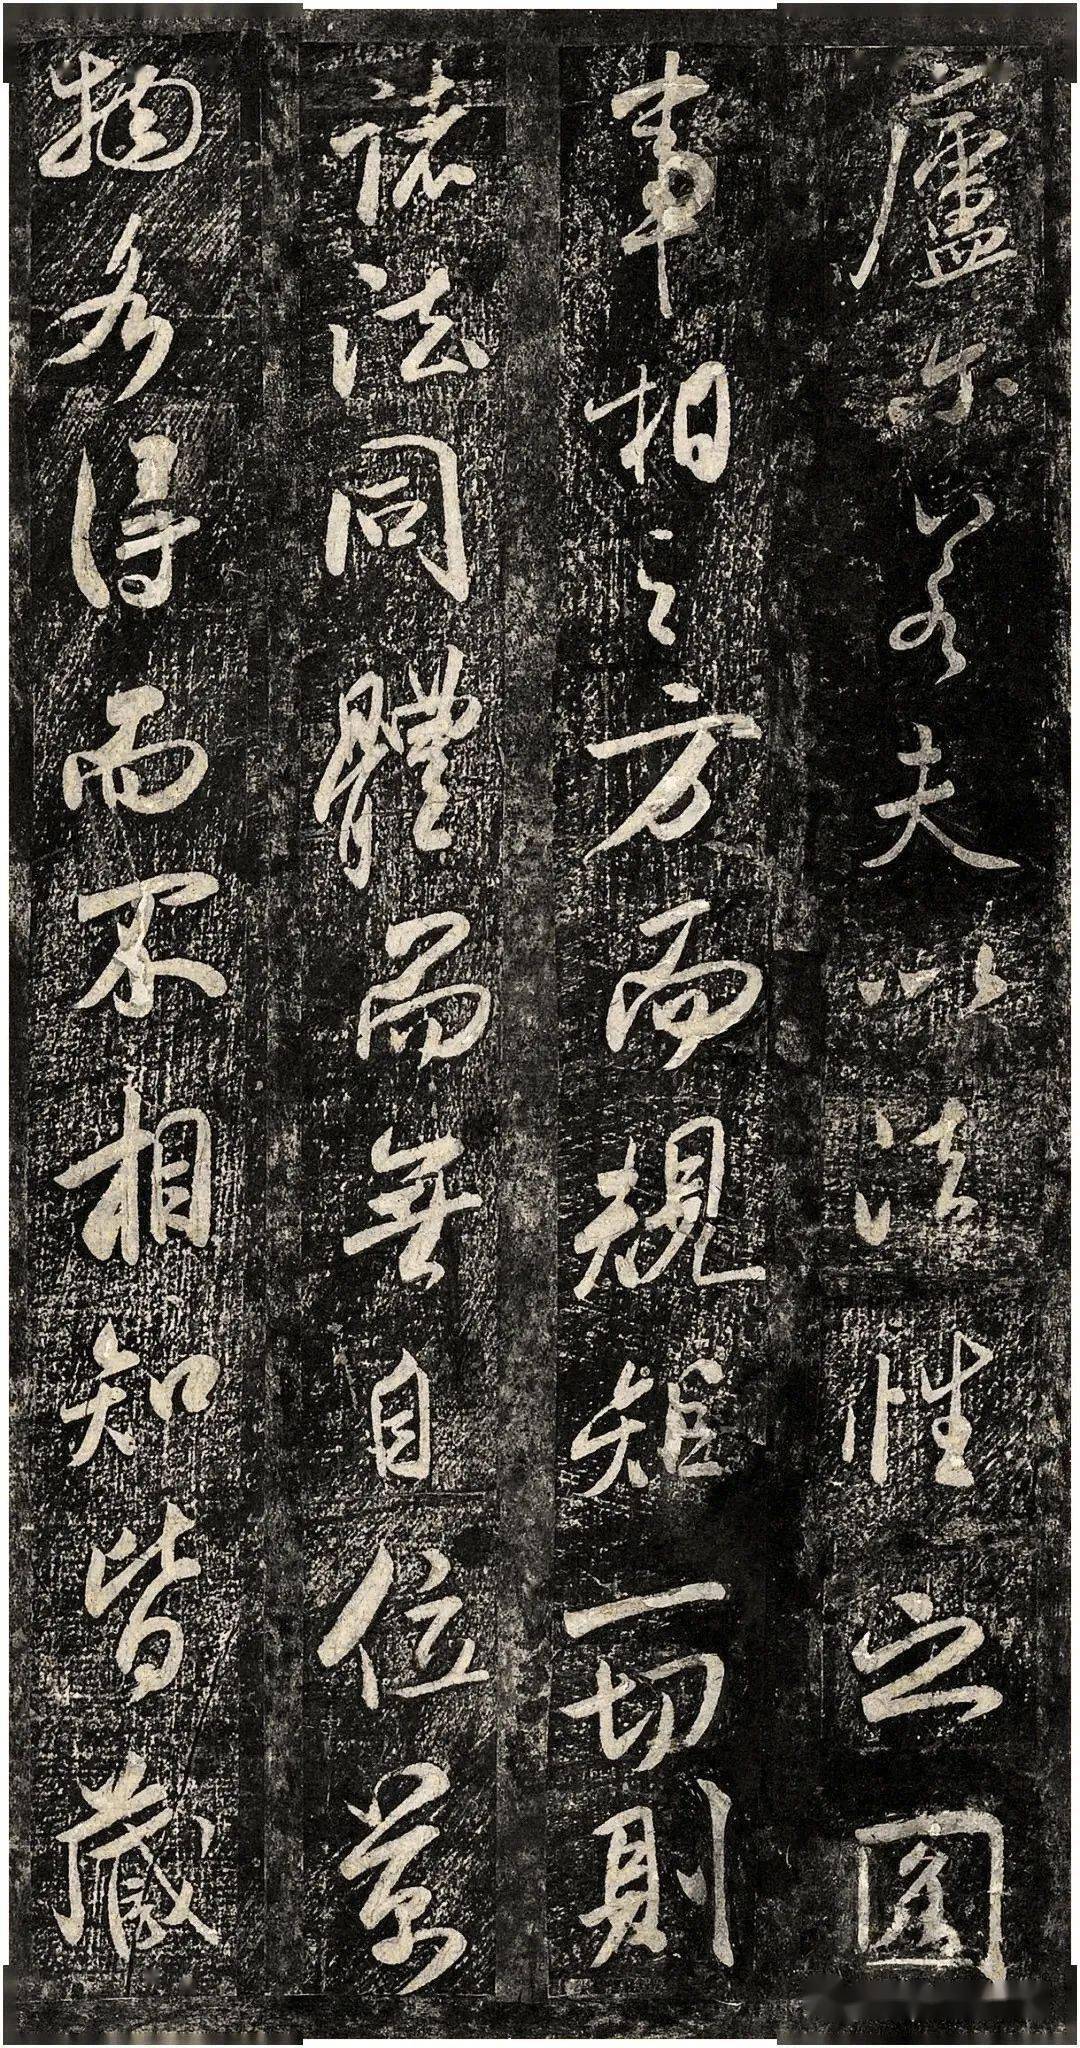 廬尓若夫以法性之圓
事相之方而規矩一切則
諸法同體而無自位萬
物各得而不相知皆藏